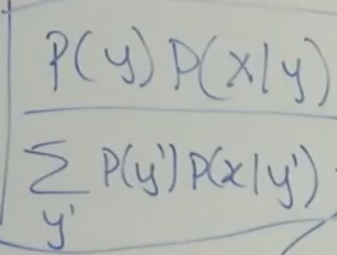 P(y) P(x|y)
∑ P(y') P(x|y')
y'